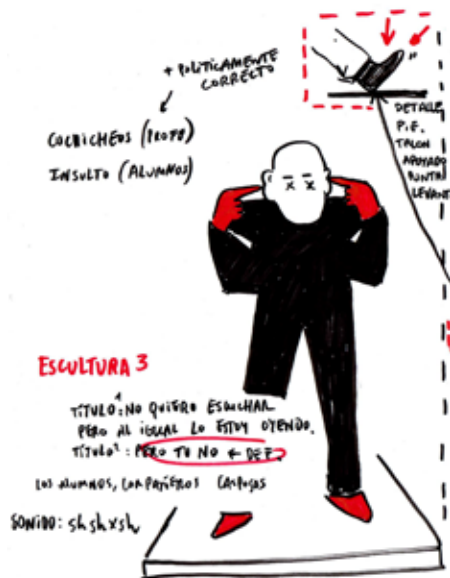 + POLÍTICAMENTE
CORRECTO
CUCHICHEOS (PROFS)
INSULTO (ALUMNOS)
DETALLE
PIE.
TALON
APOYADO
PUNTA
LEVANT
ESCULTURA 3
TÍTULO¹: NO QUIERO ESCUCHAR
PERO AL IGUAL LO ESTOY OYENDO.
TÍTULO²: PERO TU NO ← DEF.
LOS ALUMNOS, COMPAÑEROS
SONIDO: sh sh x sh